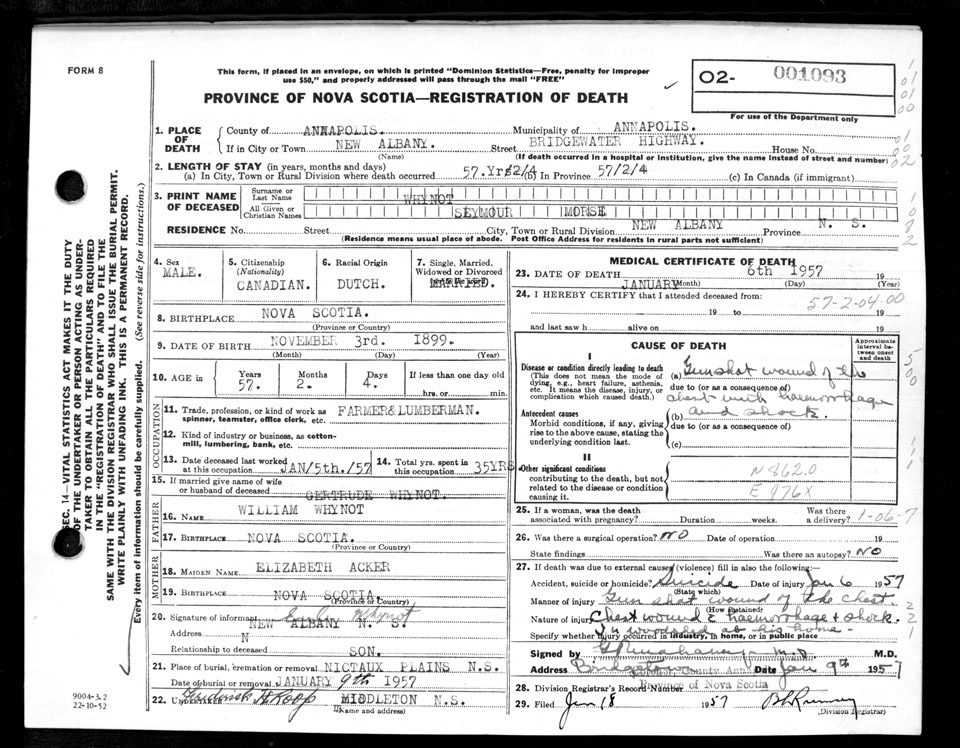 FORM 8
This form, if placed in an envelope, on which is printed "Dominion Statistics—Free, penalty for improper
use $50," and properly addressed will pass through the mail "FREE"
PROVINCE OF NOVA SCOTIA—REGISTRATION OF DEATH
O2- 001093
For use of the Department only
1. PLACE OF DEATH
County of ANNAPOLIS. Municipality of ANNAPOLIS.
If in City or Town NEW ALBANY. Street BRIDGEWATER HIGHWAY. House No.
(Name) (If death occurred in a hospital or institution, give the name instead of street and number)
2. LENGTH OF STAY (in years, months and days)
(a) In City, Town or Rural Division where death occurred 57.Yrs2/4 (b) In Province 57/2/4 (c) In Canada (if immigrant)
3. PRINT NAME OF DECEASED
Surname or Last Name WHYNOT
All Given or Christian Names SEYMOUR MORSE
RESIDENCE No. Street City, Town or Rural Division NEW ALBANY Province N. S.
(Residence means usual place of abode. Post Office Address for residents in rural parts not sufficient)
4. Sex MALE.
5. Citizenship (Nationality) CANADIAN.
6. Racial Origin DUTCH.
7. Single, Married, Widowed or Divorced MARRIED.
8. BIRTHPLACE NOVA SCOTIA.
(Province or Country)
9. DATE OF BIRTH NOVEMBER 3rd. 1899.
(Month) (Day) (Year)
10. AGE IN Years 57. Months 2. Days 4. If less than one day old
hrs. or min.
OCCUPATION
11. Trade, profession, or kind of work as spinner, teamster, office clerk, etc. FARMER&LUMBERMAN.
12. Kind of industry or business, as cotton-mill, lumbering, bank, etc.
13. Date deceased last worked at this occupation JAN/5th./57
14. Total yrs. spent in this occupation 35YRS
15. If married give name of wife or husband of deceased GERTRUDE WHYNOT.
FATHER
16. NAME WILLIAM WHYNOT
17. BIRTHPLACE NOVA SCOTIA.
(Province or Country)
MOTHER
18. MAIDEN NAME ELIZABETH ACKER
19. BIRTHPLACE NOVA SCOTIA.
(Province or Country)
20. Signature of informant Whynot
Address NEW ALBANY N. S.
N
Relationship to deceased SON.
21. Place of burial, cremation or removal NICTAUX PLAINS N.S.
Date of burial or removal JANUARY 9th 1957
22. UNDERTAKER Roop MIDDLETON N.S.
(Name and address)
MEDICAL CERTIFICATE OF DEATH
23. DATE OF DEATH JANUARY 6th 1957 19
(Month) (Day) (Year)
24. I HEREBY CERTIFY that I attended deceased from:
57-2-04-00
19 to 19
and last saw h alive on 19
CAUSE OF DEATH
Approximate interval between onset and death
I
Disease or condition directly leading to death
(This does not mean the mode of dying, e.g., heart failure, asthenia, etc. It means the disease, injury, or complication which caused death.)
(a) Gunshot wound of the
due to (or as a consequence of)
chest with haemorrhage
Antecedent causes
Morbid conditions, if any, giving rise to the above cause, stating the underlying condition last.
(b) and shock.
due to (or as a consequence of)
(c)
II
Other significant conditions
contributing to the death, but not related to the disease or condition causing it.
N 862.0
E 976X
25. If a woman, was the death associated with pregnancy? Duration weeks. Was there a delivery?
1-06-7
26. Was there a surgical operation? NO Date of operation 19
State findings Was there an autopsy? NO
27. If death was due to external causes (violence) fill in also the following:
Accident, suicide or homicide? Suicide Date of injury Jan 6 1957
(State which)
Manner of injury Gun shot wound of the chest.
(How sustained)
Nature of injury Chest wound c haemorrhage & shock.
In woodshed at his home -
Specify whether injury occurred in industry, in home, or in public place
Signed by M.D. M.D.
Address Bridgetown Date Jan 9th 1957
Coroner, County Anna
Province of Nova Scotia
28. Division Registrar's Record Number
29. Filed Jan 18 1957
(Division Registrar)
SEC. 14—VITAL STATISTICS ACT MAKES IT THE DUTY
OF THE UNDERTAKER OR PERSON ACTING AS UNDER-
TAKER TO OBTAIN ALL THE PARTICULARS REQUIRED
IN THE "REGISTRATION OF DEATH" AND TO FILE THE
SAME WITH THE DIVISION REGISTRAR WHO SHALL ISSUE THE BURIAL PERMIT.
WRITE PLAINLY WITH UNFADING INK. THIS IS A PERMANENT RECORD.
Every item of information should be carefully supplied. (See reverse side for instructions.)
9004-3.2
22-10-52